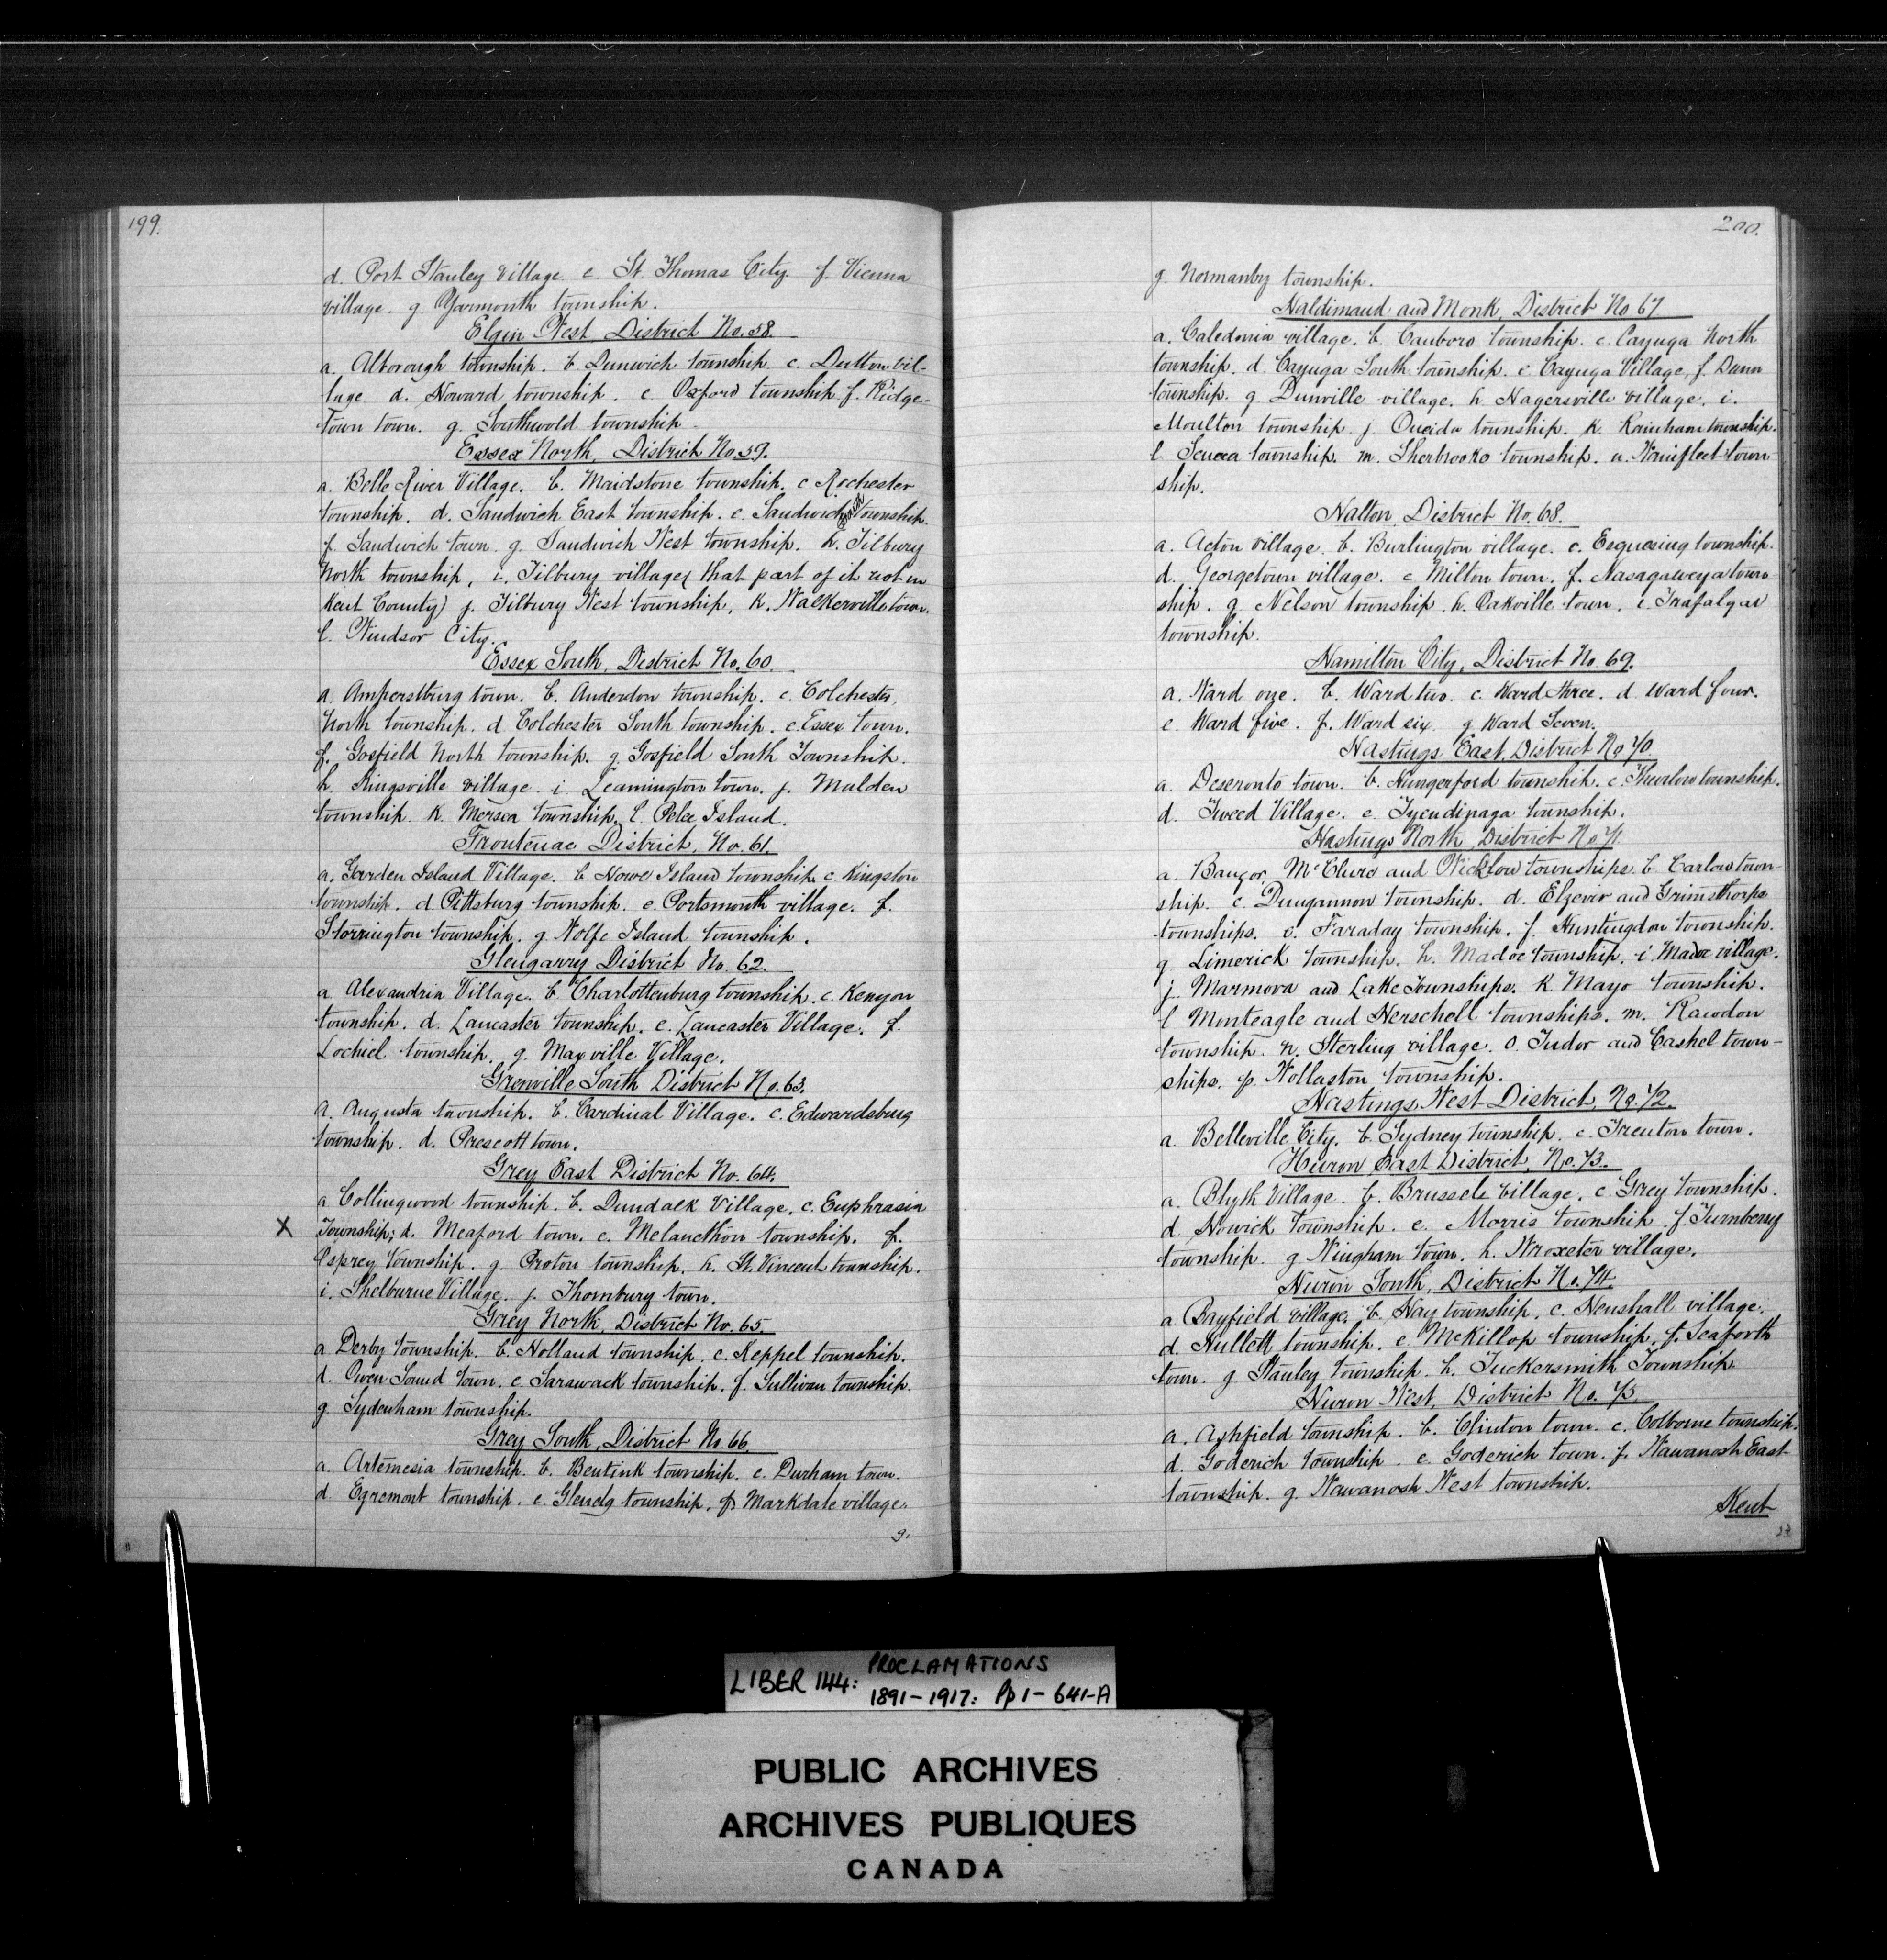 199.
d. Port Stanley Village e. St. Thomas City. f. Vienna
village. g Yarmouth township.
Elgin West, District No. 58.
a. Alborough township. b Dunwich township. c. Dutton vil-
lage d. Howard township. e Oxford township f. Ridge-
Town town. g. Southwold township.
Essex North, District No. 59.
a. Belle River Village. b. Maidstone township. c Rochester
township. d. Sandwich East township. e. Sandwich South township.
f. Sandwich town. g. Sandwich West township. h. Tilbury
North township, i. Tilbury village (that part of it not in
Kent County) j. Tilbury West township, k. Walkerville town.
l. Windsor City.
Essex South, District No. 60.
a. Amherstburg town. b. Anderdon township. c. Colchester
North township. d Colchester South township. e. Essex town.
f. Gosfield North township. g. Gosfield South Township.
h. Kingsville village. i. Leamington town. j. Malden
township. k. Mersea township. l. Pelee Island.
Frontenac District, No. 61.
a. Garden Island Village. b Howe Island township. c. Kingston
township. d Pittsburg township. e Portsmouth village. f.
Storrington township. g Wolfe Island township.
Glengarry District No. 62.
a Alexandria Village. b Charlottenburg township. c. Kenyon
township. d. Lancaster township. e. Lancaster Village. f.
Lochiel township. g. Maxville Village.
Grenville South District No. 63.
a. Augusta township. b. Cardinal Village. c. Edwardsburg
township. d. Prescott town.
Grey East District No. 64.
a Collingwood township. b. Dundalk Village. c. Euphrasia
X Township; d. Meaford town. e. Melancthon township. f.
Osprey township. g. Proton township. h. St. Vincent township.
i. Shelburne Village. j. Thornbury town.
Grey North, District No. 65.
a Derby township. b. Holland township. c. Keppel township.
d. Owen Sound town. e. Sarawack township. f. Sullivan township.
g. Sydenham township.
Grey South, District No. 66.
a. Artemesia township. b. Bentink township. c. Durham town.
d Egremont township. e. Glenelg township. f Markdale village.
g.
200.
g. Normanby township.
Haldimand and Monk, District No 67
a. Caledonia village. b. Canboro township. c. Cayuga North
township. d. Cayuga South township. e Cayuga Village, f. Dunn
township. g Dunville village. h. Hagersville village. i.
Moulton township. j. Oneida township. k. Rainham township.
l. Seneca township. m. Sherbrooke township. n. Wainfleet town
ship.
Halton, District No. 68.
a. Acton village. b. Burlington village. c. Esquesing township.
d. Georgetown village. e Milton town. f. Nasagaweya town
ship. g. Nelson township. h. Oakville town. i. Trafalgar
township.
Hamilton City, District No. 69.
a. Ward one. b. Ward two. c. Ward three. d. Ward four.
e. Ward five. f. Ward six. g Ward Seven.
Hastings East, District No 70
a. Deseronto town. b. Hungerford township. c. Thurlow township.
d. Tweed Village. e. Tyendinaga township.
Hastings North, District No 71
a. Bangor, McClure and Wicklow townships. b Carlow town-
ship. c Dungannon township. d. Elzevir and Grimsthorpe
townships. e. Faraday township. f. Huntingdon township.
g. Limerick township. h. Madoc township. i Madoc village.
j. Marmora and Lake Townships. k. Mayo township.
l Monteagle and Herschell townships. m. Rawdon
township. n. Sterling village. o. Tudor and Cashel town-
ships. p. Wollaston township.
Hastings West District, No. 72.
a. Belleville City. b. Sydney township. c. Trenton town.
Huron East District, No. 73.
a. Blyth Village. b. Brussels village. c Grey township.
d Howick township. e. Morris township f. Turnberry
township. g Wingham town. h. Wroxeter village.
Huron South, District No. 74.
a Bayfield village. b. Hay township. c. Henshall village.
d. Hullett township. e McKillop township. f. Seaforth
town. g Stanley township. h. Tuckersmith Township.
Huron West, District No. 75.
a. Ashfield township. b. Clinton town. c. Colborne township.
d. Goderich township. e. Goderich town. f. Wawanosh East
township. g. Wawanosh West township.
Kent
LIBER 144: PROCLAMATIONS
1891-1917: Pp 1-641-A
PUBLIC ARCHIVES
ARCHIVES PUBLIQUES
CANADA